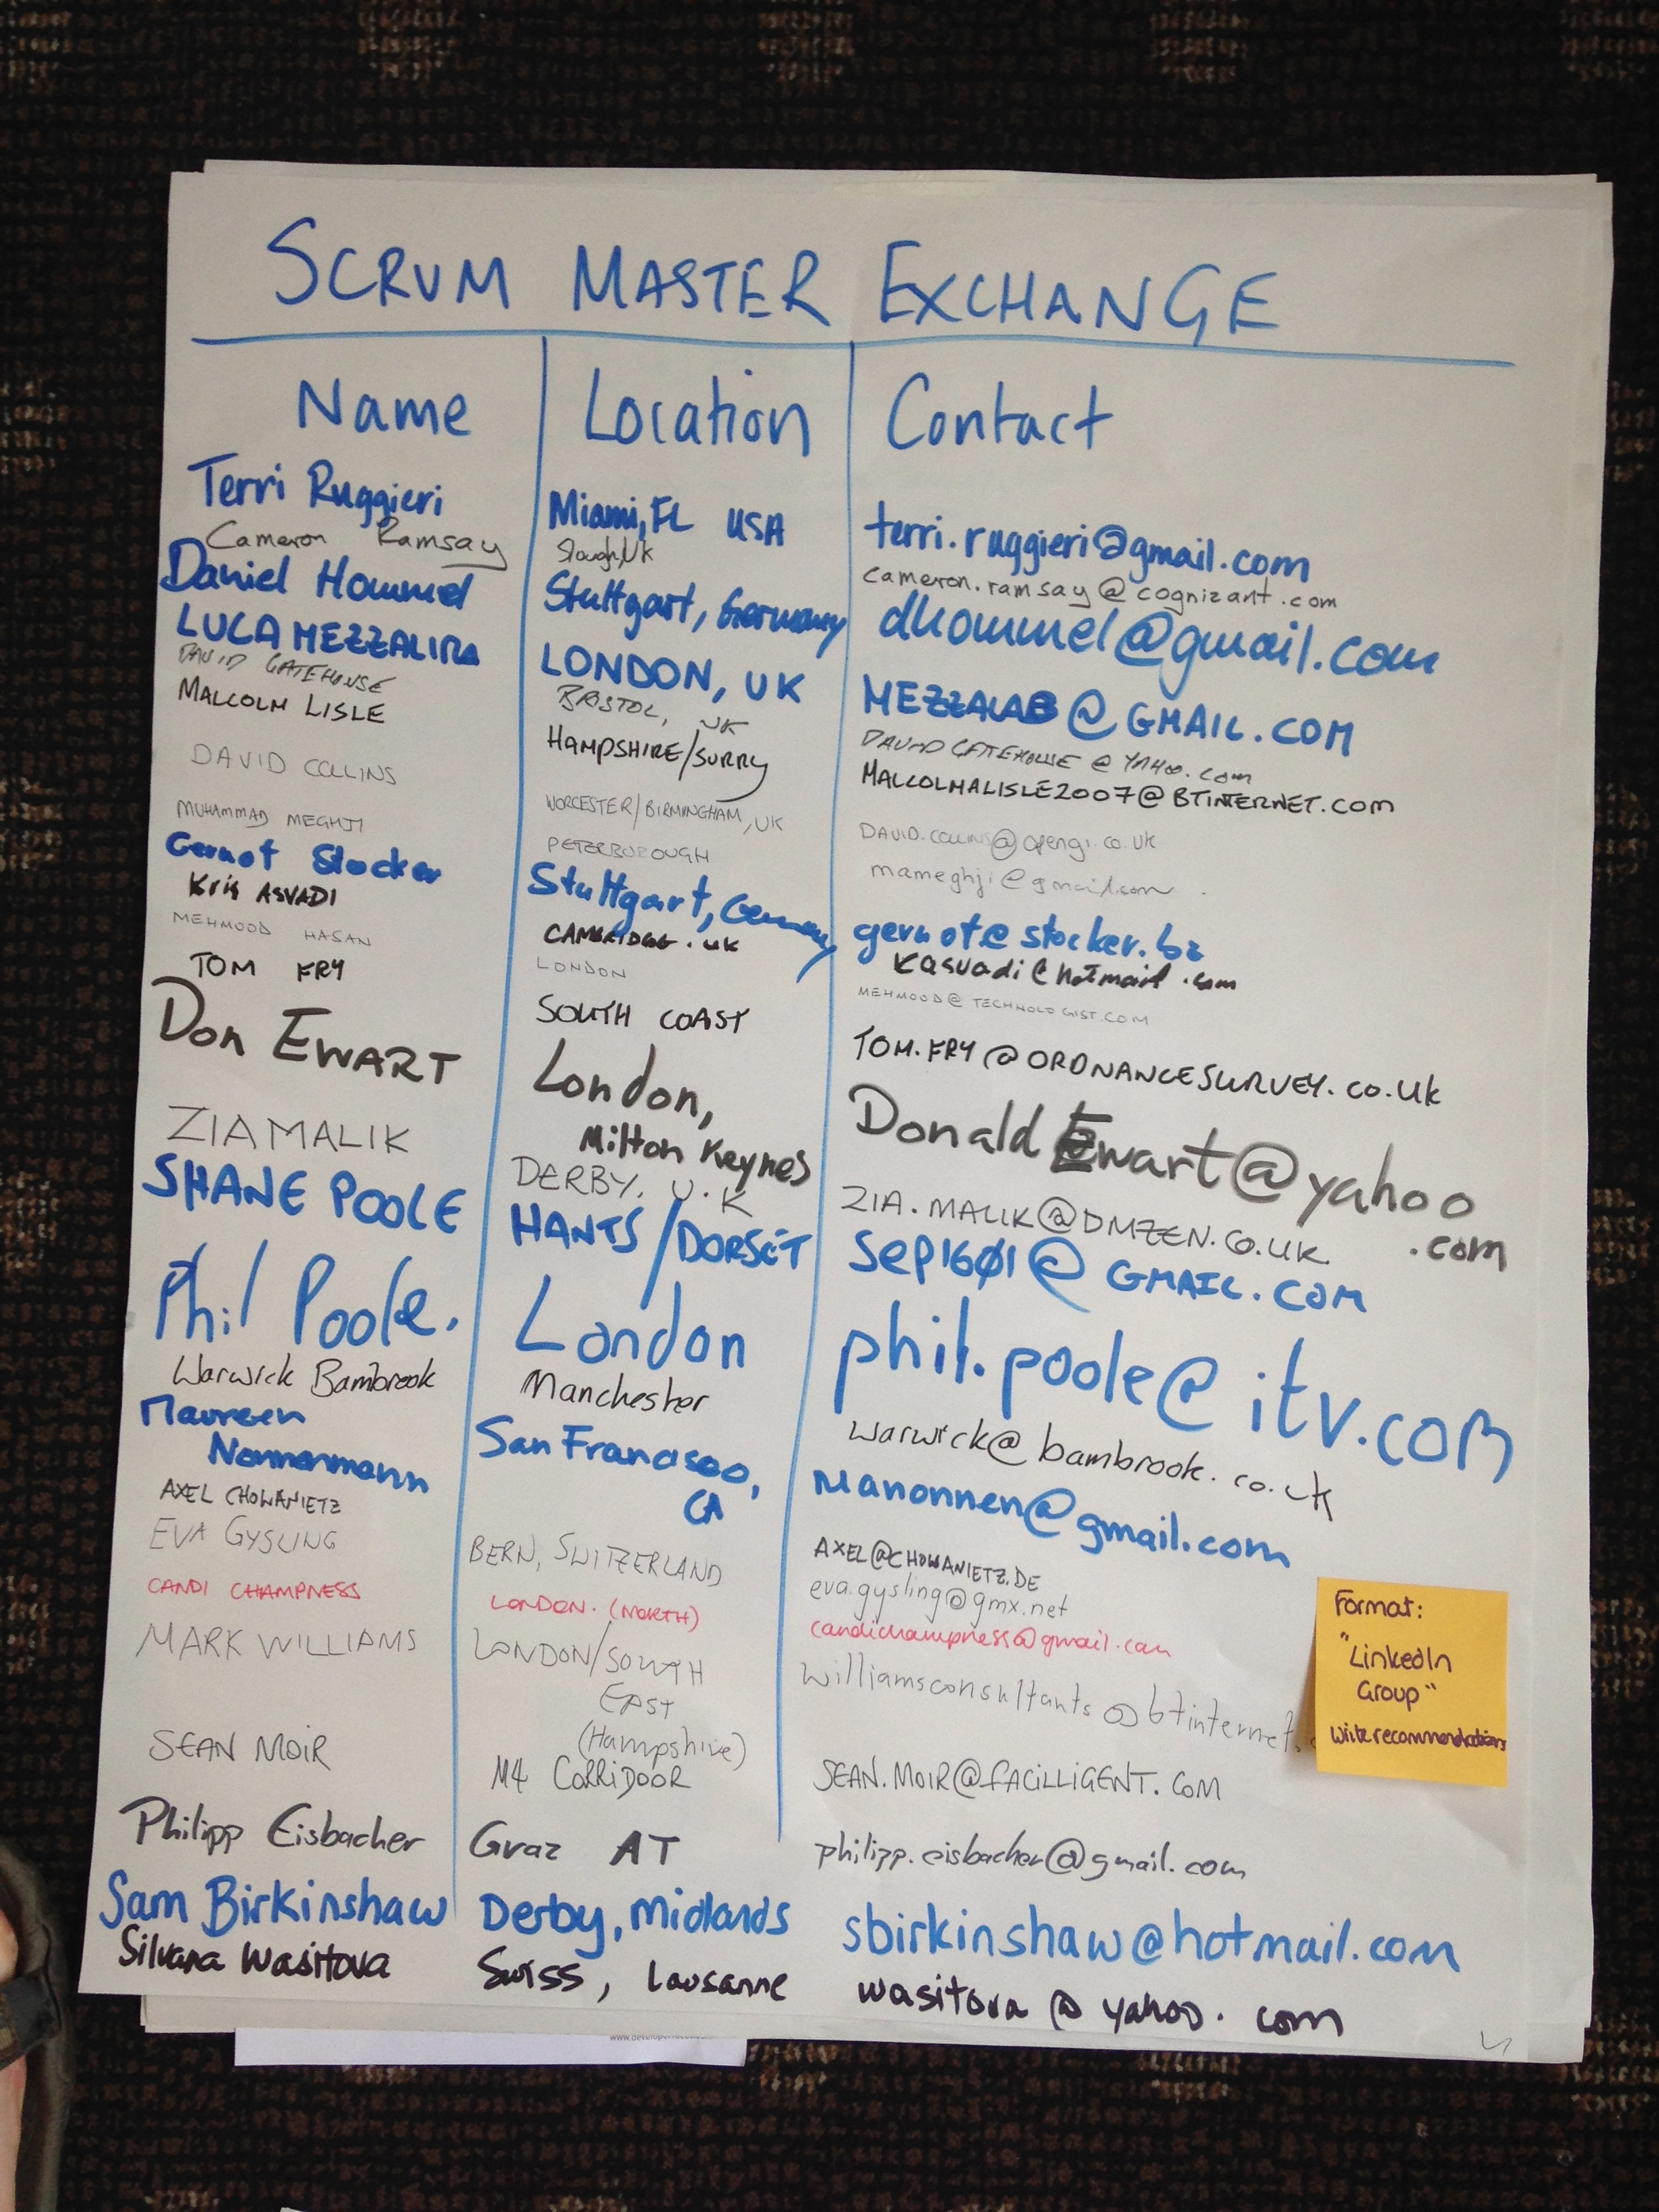 SCRUM MASTER EXCHANGE
Name Location Contact
Terri Ruggieri Miami, FL USA terri.ruggieri@gmail.com
Cameron Ramsay Slough, UK cameron.ramsay@cognizant.com
Daniel Hommel Stuttgart, Germany dhommel@gmail.com
LUCA MEZZALIRA LONDON, UK MEZZALAB@GMAIL.COM
DAVID GATEHOUSE BRISTOL, UK DAVIDGATEHOUSE@YAHOO.COM
MALCOLM LISLE HAMPSHIRE/SURRY MALCOLMALISLE2007@BTINTERNET.COM
DAVID COLLINS WORCESTER/BIRMINGHAM, UK DAVID.COLLINS@opengi.co.uk
MUHAMMAD MEGHJI PETERBOROUGH mameghji@gmail.com
Gernot Stocker Stuttgart, Germany gernot@stocker.bz
Kris ASVADI CAMBRIDGE. UK kasvadi@hotmail.com
MEHMOOD HASAN LONDON MEHMOOD@TECHNOLOGIST.COM
TOM FRY SOUTH COAST TOM.FRY@ORDNANCESURVEY.CO.UK
Don EWART London, Milton Keynes DonaldEwart@yahoo.com
ZIA MALIK DERBY. U.K ZIA.MALIK@DMZEN.CO.UK
SHANE POOLE HANTS/DORSET SEP1601@GMAIL.COM
Phil Poole. London phil.poole@itv.com
Warwick Bambrook Manchester warwick@bambrook.co.uk
Maureen
Nonnenmann San Francisco, CA Manonnen@gmail.com
AXEL CHOWANIETZ AXEL@CHOWANIETZ.DE
EVA GYSLING BERN, SWITZERLAND eva.gysling@gmx.net
CANDI CHAMPNESS LONDON. (NORTH) candichampness@gmail.com
MARK WILLIAMS LONDON/SOUTH EAST (Hampshire) williamsconsultants@btinternet.
SEAN MOIR M4 CORRIDOOR SEAN.MOIR@FACILLIGENT.COM
Philipp Eisbacher Graz AT philipp.eisbacher@gmail.com
Sam Birkinshaw Derby, Midlands sbirkinshaw@hotmail.com
Silvana Wasitova Swiss, Lausanne wasitova@yahoo.com
Format:
"LinkedIn
Group"
write recommendations